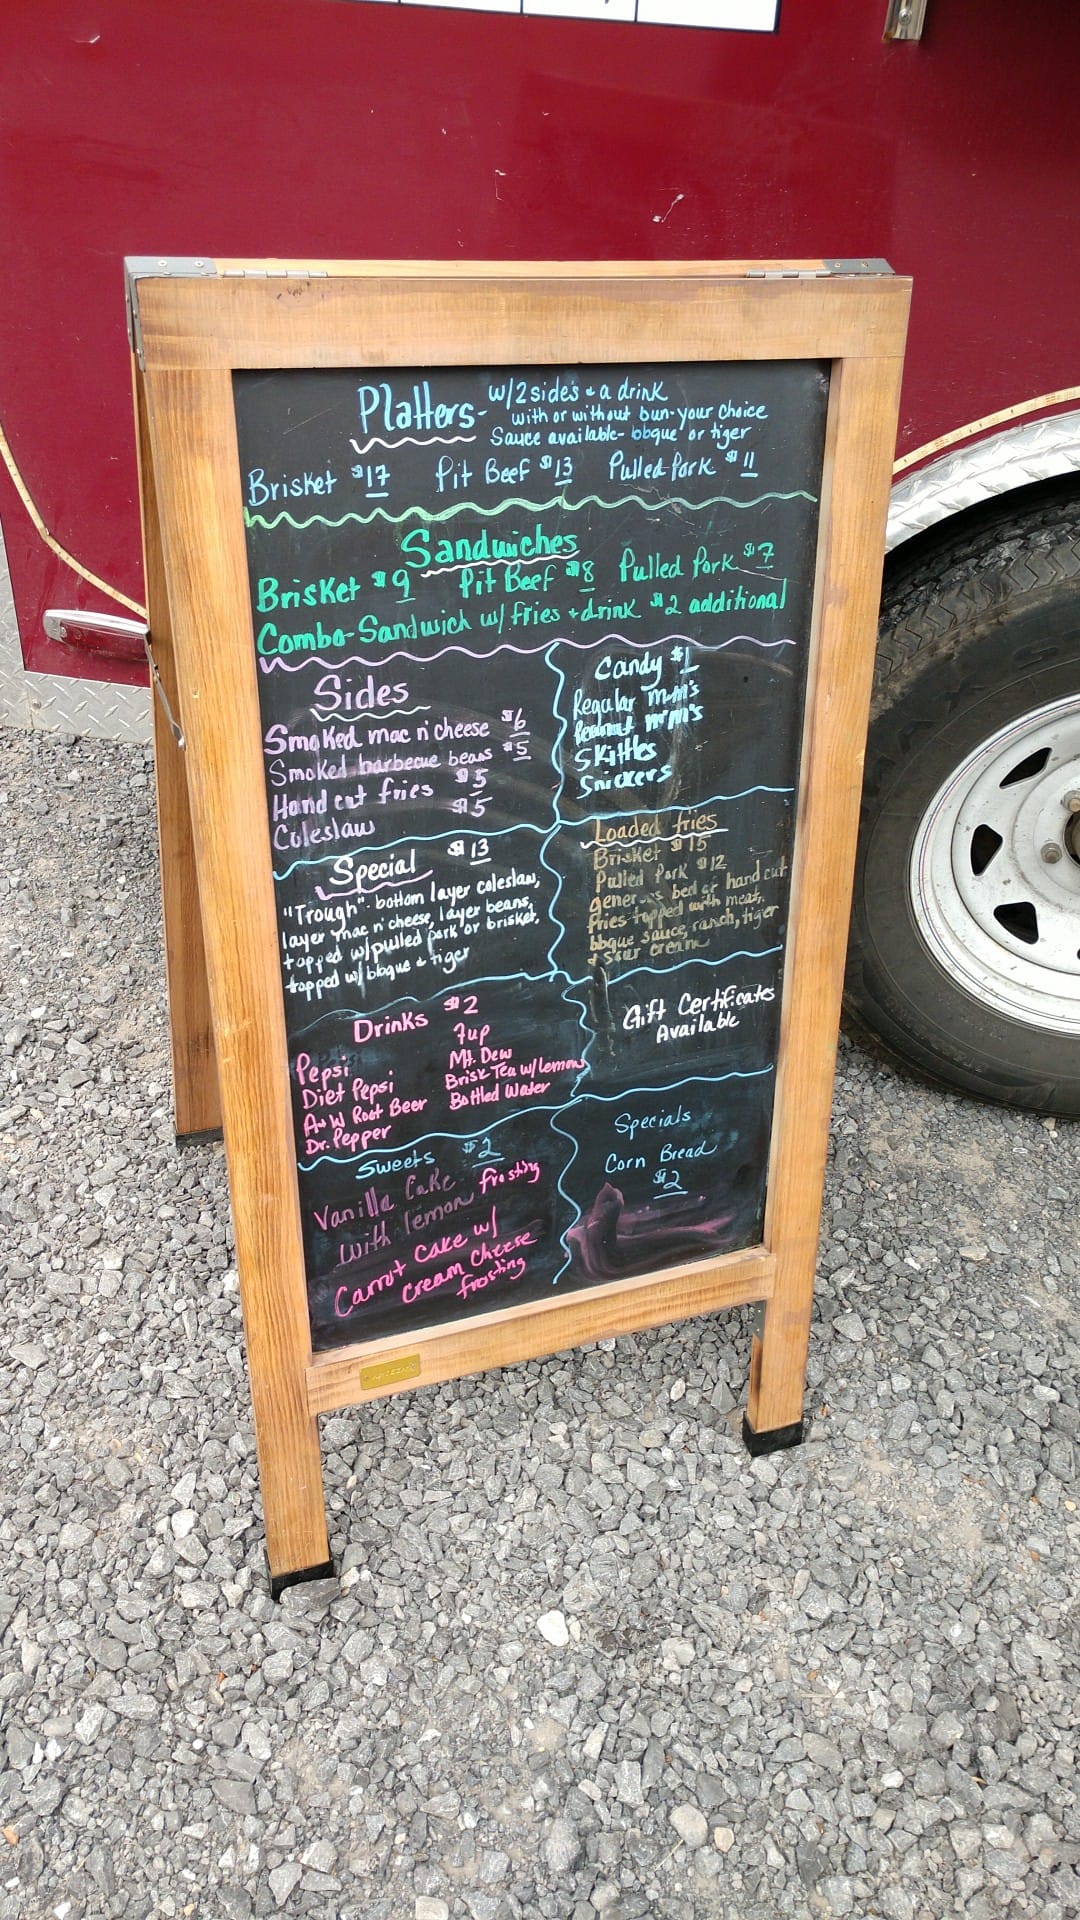 Platters- w/2 sides + a drink
with or without bun-your choice
Sauce available- bbque or tiger
Brisket $17 Pit Beef $13 Pulled Pork $11
Sandwiches
Brisket $9 Pit Beef $8 Pulled Pork $7
Combo-Sandwich w/fries + drink $2 additional
Sides
Smoked mac n' cheese $6
Smoked barbecue beans $5
Hand cut fries $5
Coleslaw $5
Candy $1
Regular m+m's
Peanut m+m's
Skittles
Snickers
Special $13
"Trough"- bottom layer coleslaw,
layer mac n' cheese, layer beans,
topped w/pulled pork or brisket,
topped w/bbque + tiger
Loaded fries
Brisket $15
Pulled Pork $12
generous bed of hand cut
fries topped with meat,
bbque sauce, ranch, tiger
+ sour cream
Drinks $2
Pepsi
Diet Pepsi
A+W Root Beer
Dr. Pepper
7up
Mt. Dew
Brisk Tea w/lemon
Bottled Water
Gift Certificates
Available
Sweets $2
Vanilla Cake
with lemon frosting
Carrot Cake w/
cream cheese
frosting
Specials
Corn Bread
$2